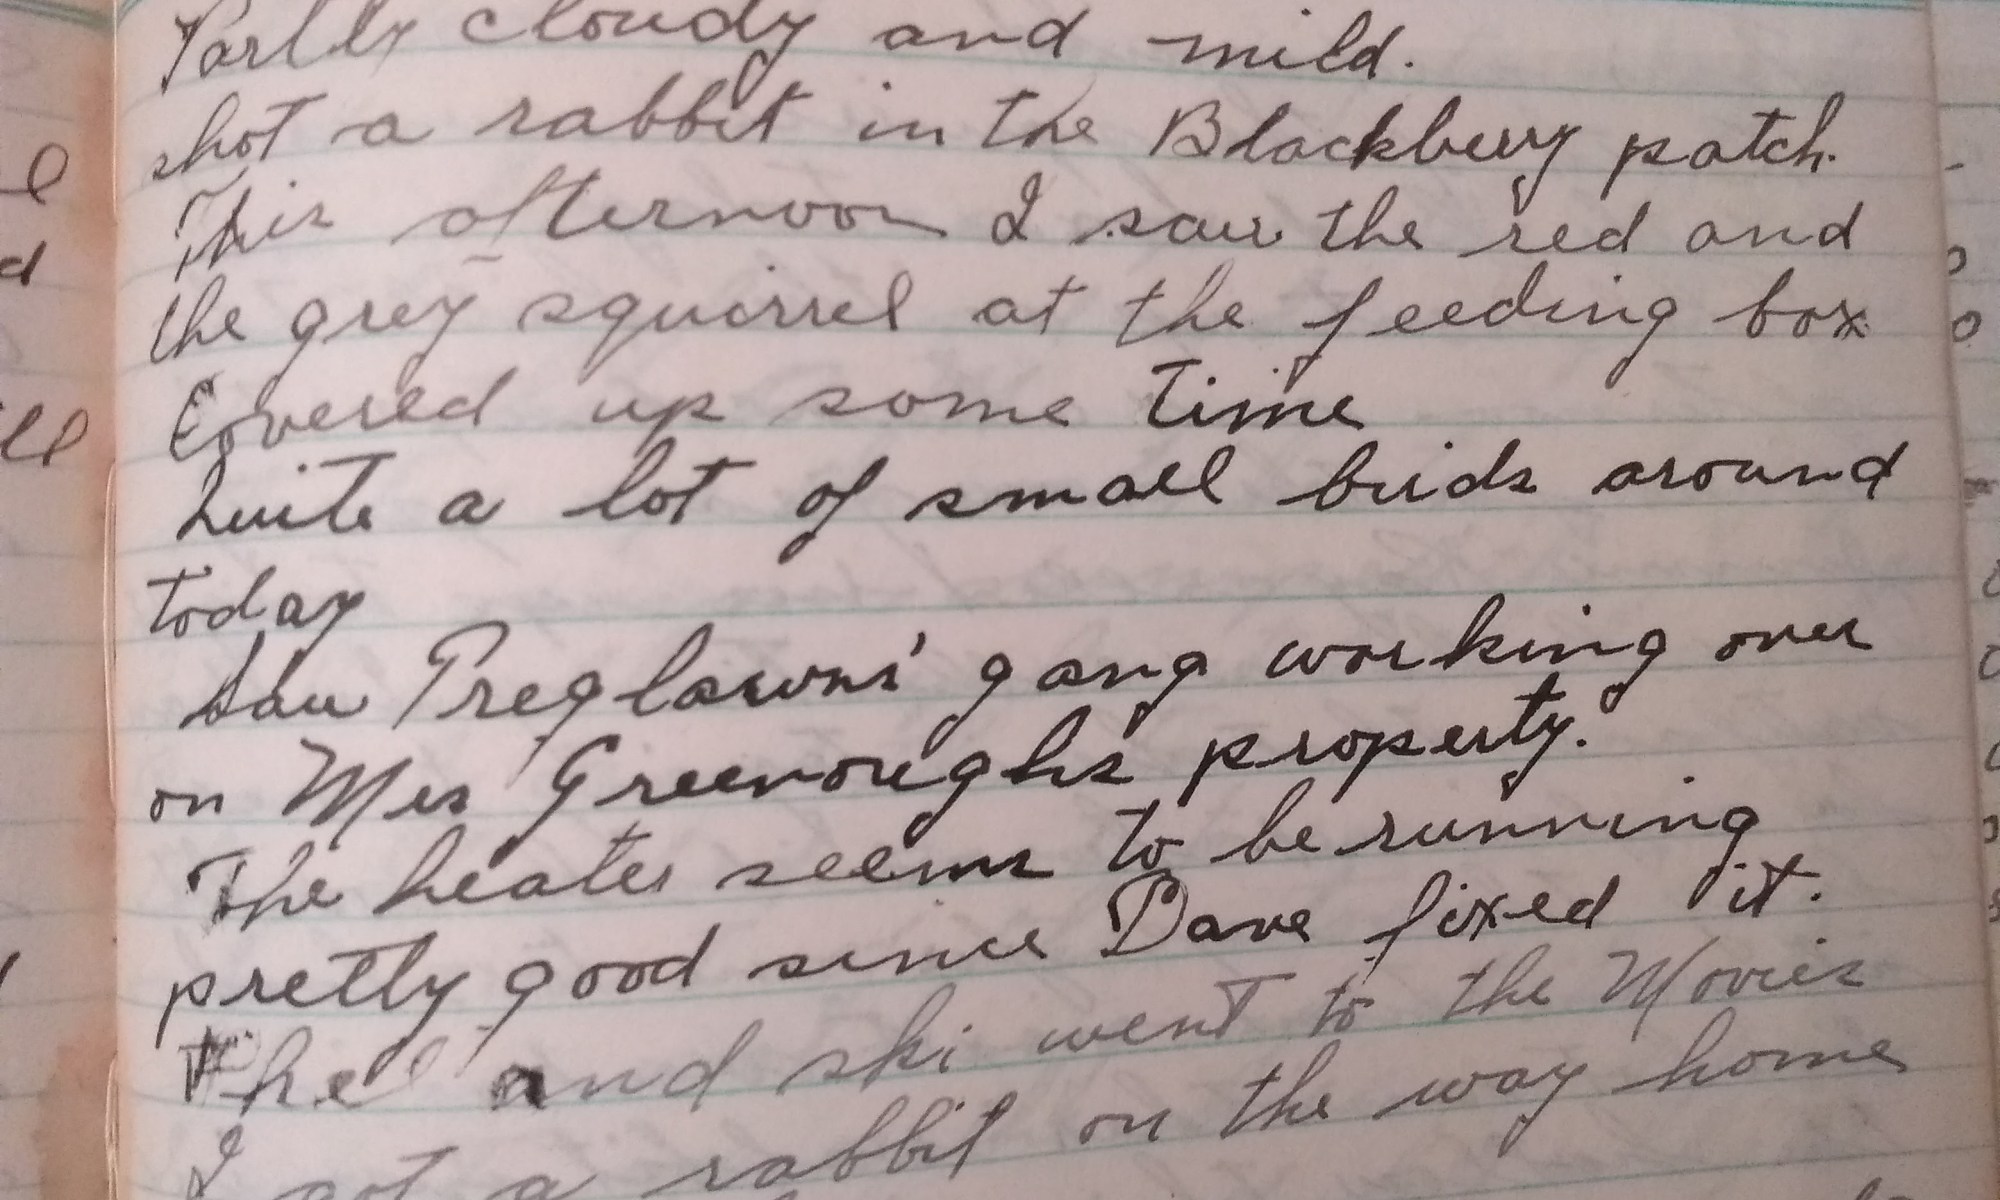 Partly cloudy and mild.
shot a rabbit in the Blackberry patch.
This afternoon I saw the red and
the grey squirrel at the feeding box
Covered up some time
Quite a lot of small birds around
today
Saw gang working over
on Mrs Greenoughs property.
The heater seems to be running
pretty good since Dave fixed it.
and ski went to the Movies
I got a rabbit on the way home